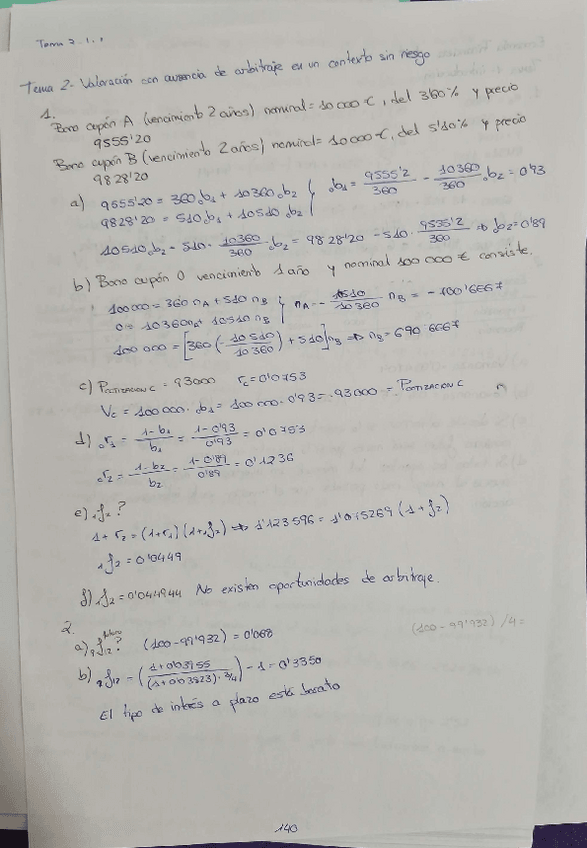 Tema 2.1.
Tema 2- Valoración con ausencia de arbitraje en un contexto sin riesgo
1.
Bono cupón A (vencimiento 2 años) nominal = 10 000 €, del 3'60% y precio
9555'20
Bono cupón B (vencimiento 2 años) nominal = 10 000 €, del 5'10% y precio
9828'20
a) 9555'20 = 360 ₀b₁ + 10360 ₀b₂ } ₀b₁ = 9555'2/360 - 10360/360 ₀b₂ = 0'93
9828'20 = 510 ₀b₁ + 10510 ₀b₂
10510 ₀b₂ - 510 · 10360/360 · ₀b₂ = 9828'20 - 510 · 9555'2/360 ⇒ ₀b₂ = 0'89
b) Bono cupón 0 vencimiento 1 año y nominal 100 000 € consiste.
100 000 = 360 nA + 510 nB } nA = - 10510/10360 nB = - 700'6667
0 = 10360 nA + 10510 nB
100 000 = [360 (- 10510/10360) + 510] nB ⇒ nB = 690'6667
c) PCOTIZACION C = 93000 rc = 0'0753
Vc = 100 000 · ₀b₁ = 100 000 · 0'93 = 93000 = PCOTIZACION C
d) ₀r₁ = 1-b₁/b₁ = 1-0'93/0'93 = 0'0753
₀r₂ = 1-b₂/b₂ = 1-0'89/0'89 = 0'1236
e) ₁f₂ ?
1 + r₂ = (1+r₁) (1+₁f₂) ⇒ 1'123596 = 1'075269 (1 + f₂)
₁f₂ = 0'0449
f) ₁f₂ = 0'044944 No existen oportunidades de arbitraje.
2.
a) ₉f₁₂ ? (100 - 99'932) = 0'068 (100 - 99'932) / 4 =
b) ₉f₁₂ = - 1 = 0'3350
El tipo de interés a plazo está barato
140